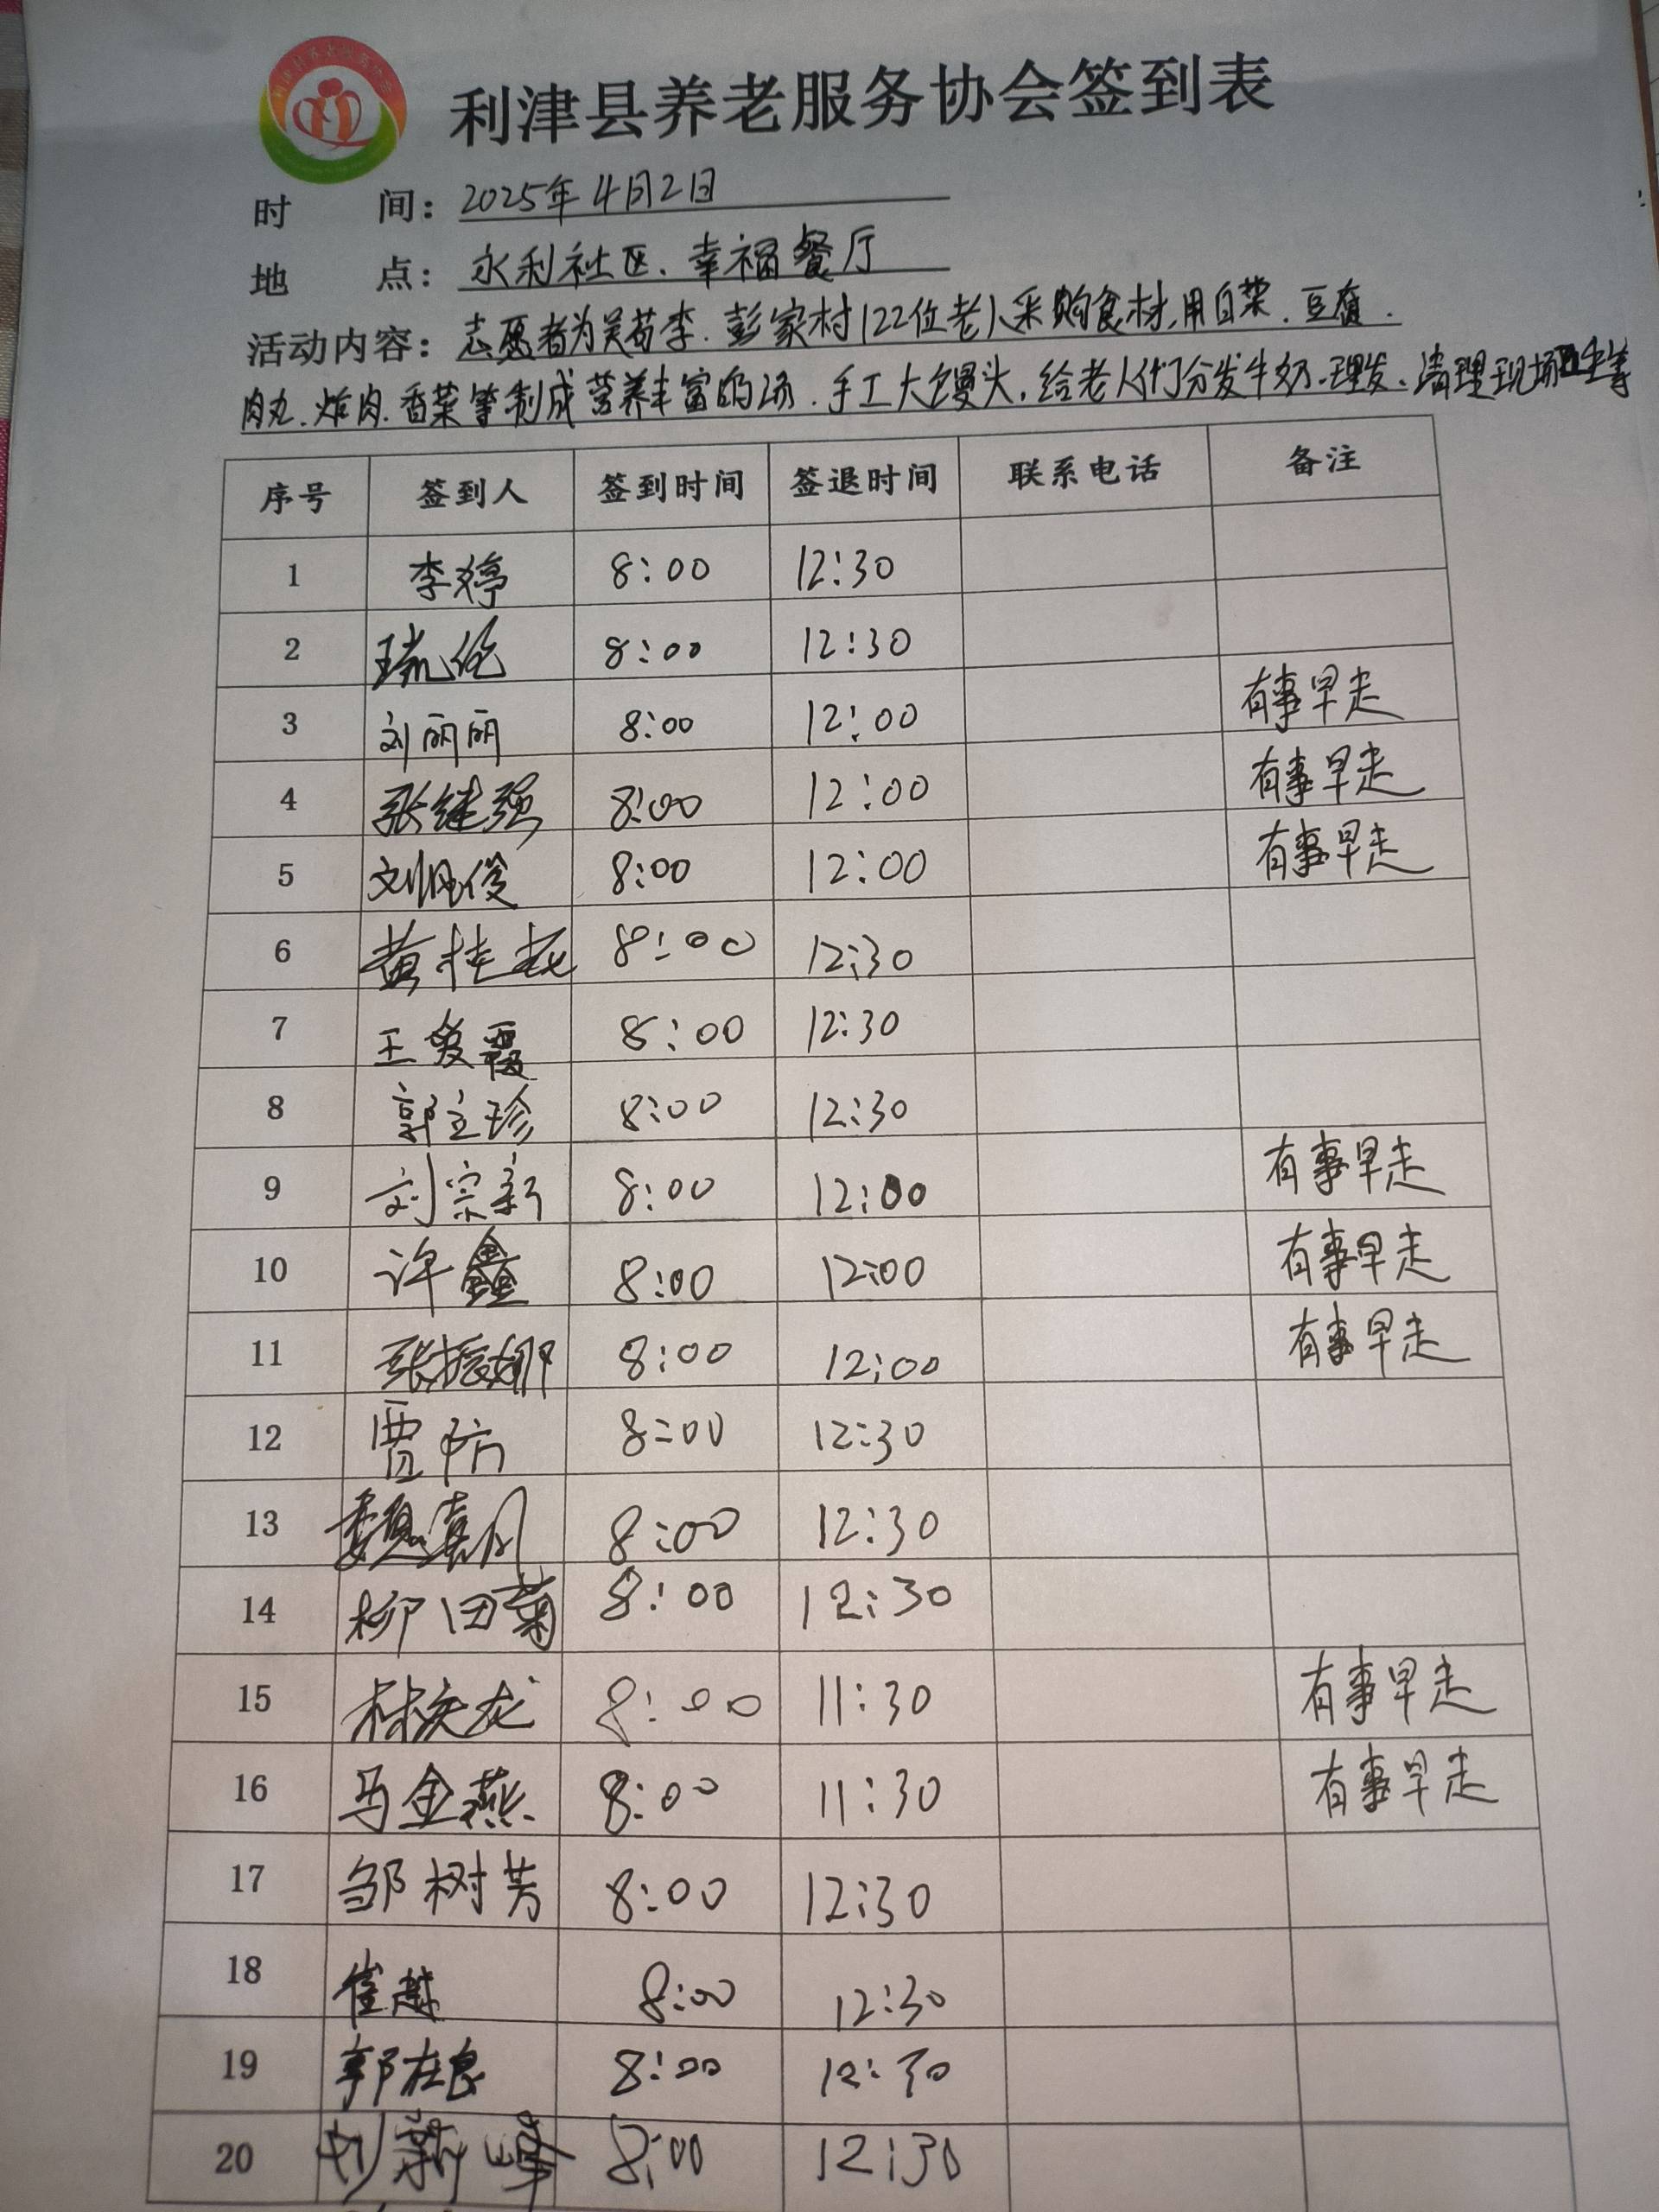 利津县养老服务协会签到表
时 间：2025年4月2日
地 点：永利社区、幸福餐厅
活动内容：志愿者为吴苟李、彭家村122位老人采购食材，用白菜、豆腐、
肉丸、炸肉、香菜等制成营养丰富的汤、手工大馒头，给老人们分发牛奶、理发、清理现场卫生等
序号 签到人 签到时间 签退时间 联系电话 备注
1 李婷 8:00 12:30
2 8:00 12:30
3 刘丽丽 8:00 12:00 有事早走
4 张继强 8:00 12:00 有事早走
5 8:00 12:00 有事早走
6 黄桂花 8:00 12:30
7 王爱霞 8:00 12:30
8 郭立珍 8:00 12:30
9 刘宗新 8:00 12:00 有事早走
10 许鑫 8:00 12:00 有事早走
11 张振娜 8:00 12:00 有事早走
12 贾防 8:00 12:30
13 8:00 12:30
14 柳田菊 8:00 12:30
15 林庆龙 8:00 11:30 有事早走
16 马金燕 8:00 11:30 有事早走
17 邹树芳 8:00 12:30
18 崔越 8:00 12:30
19 郭在良 8:00 12:30
20 刘新峰 8:00 12:30